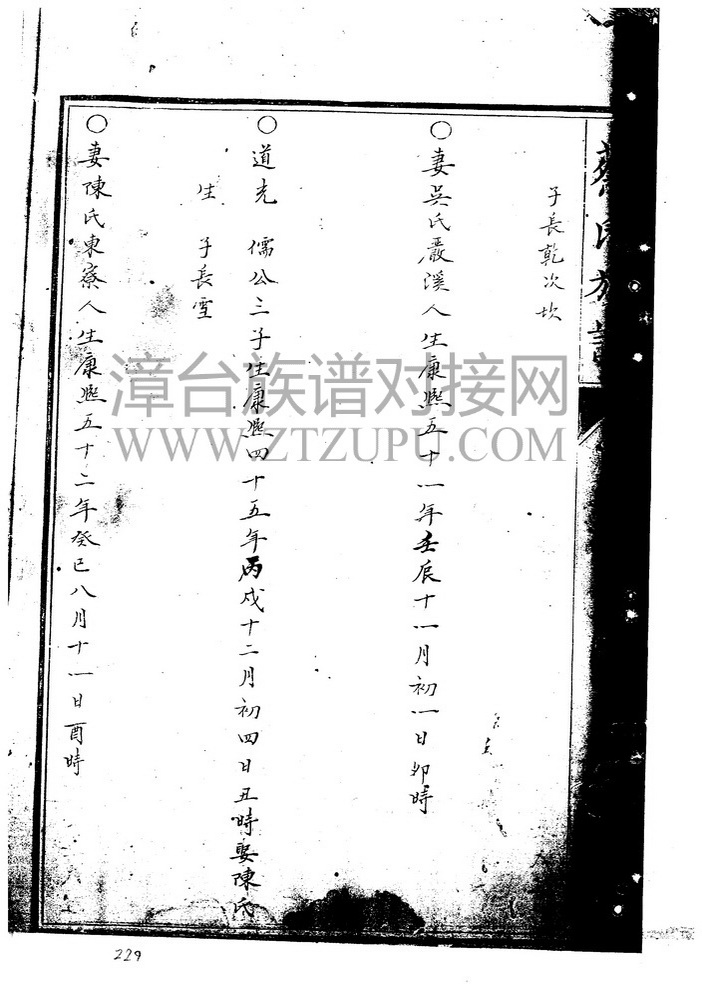 蔡氏族譜
子長乾次坎
○妻吳氏嚴溪人生康熙五十一年壬辰十一月初一日卯時
○道光 儒公三子生康熙四十五年丙戌十二月初四日丑時娶陳氏
生 子長雪
○妻陳氏東寮人生康熙五十二年癸巳八月十一日酉時
漳台族谱对接网
WWW.ZTZUPU.COM
229